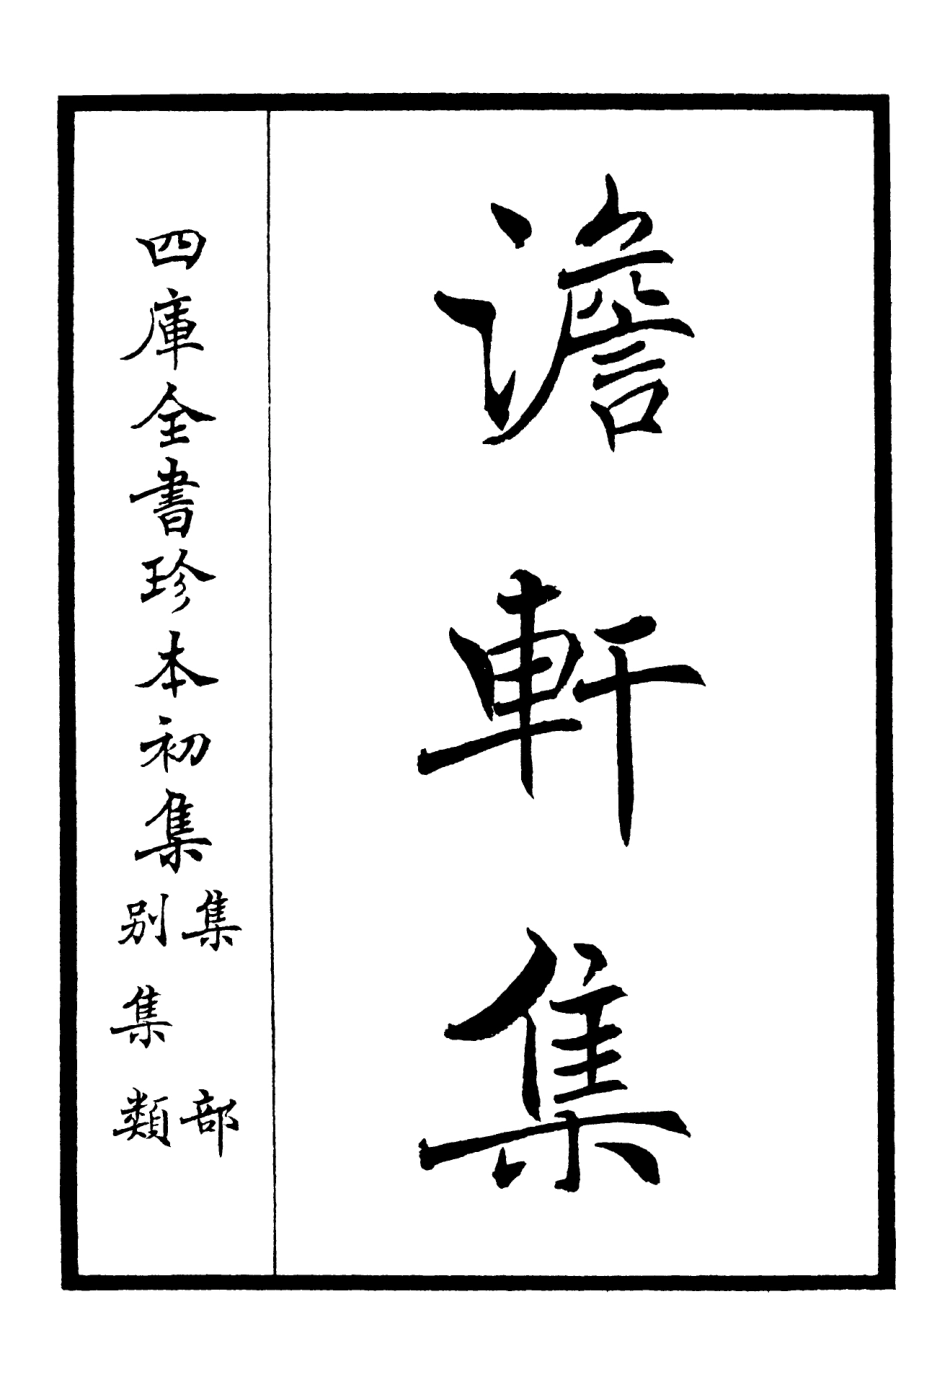 澹軒集
四庫全書珍本初集
集部
別集類